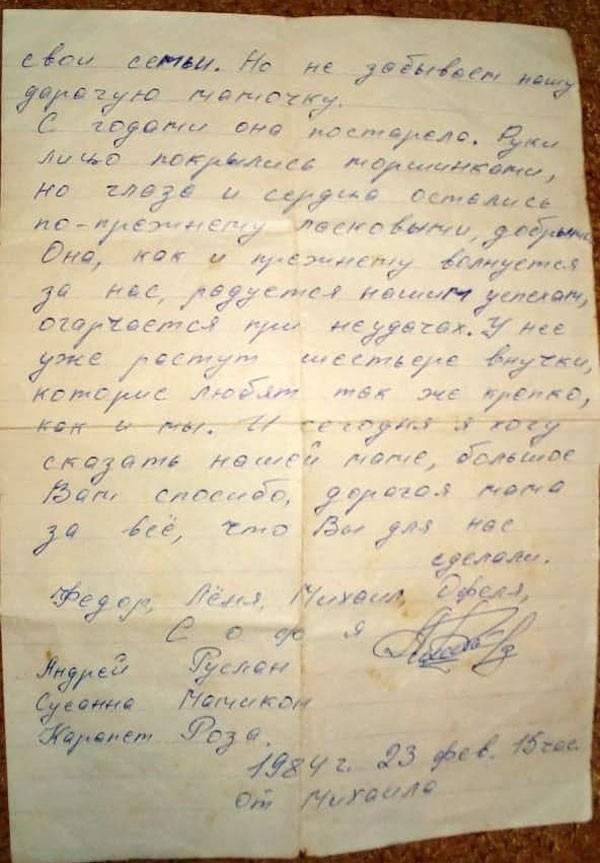 свои семьи. Но не забывает нашу
дарагую мамочку.
С годами она постарела. Руки
лицо покрылись моршинками,
но глаза и сердца остались
по-прежнему ласковыми, добрыми.
Она, как и прежнему волнуется
за нас, радуется нашим успехам,
огарчается при неудачах. У нее
уже растут шестьера внучки,
которие любят так же крепко,
как и мы. И сегодня я хочу
сказать нашей маме, большое
Вам спосибо, дорогая мама
за всё, что Вы для нас
сделали.
Федор, Лёня, Михаил, Офеля,
Софья
Андрей Руслан
Сусанна Мамикон
Карапет Роза.
1984 г. 23 фев. 15 час.
От Михаила